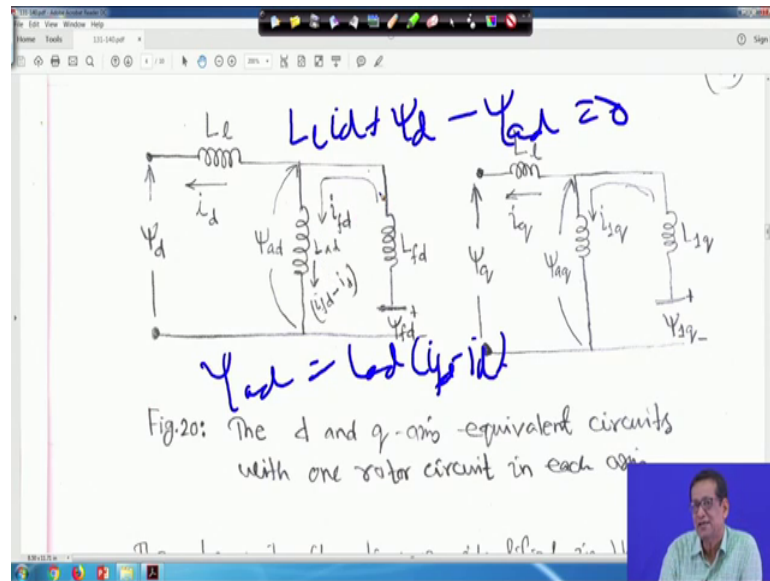 131-140.pdf - Adobe Acrobat Reader DC
File Edit View Window Help
Home Tools 131-140.pdf × Sign
Ll id + Ψd − Ψad = 0
Ll
id
Ψd
Ψad
Lad
(ifd-id)
ifd
Lfd
Ψfd
+
Ll
iq
Ψq
Ψaq
i1q
L1q
+
Ψ1q -
Ψad = Lad (ifd-id)
Fig.20: The d and q-axis equivalent circuits
with one rotor circuit in each axis
8.50 x 11.71 in